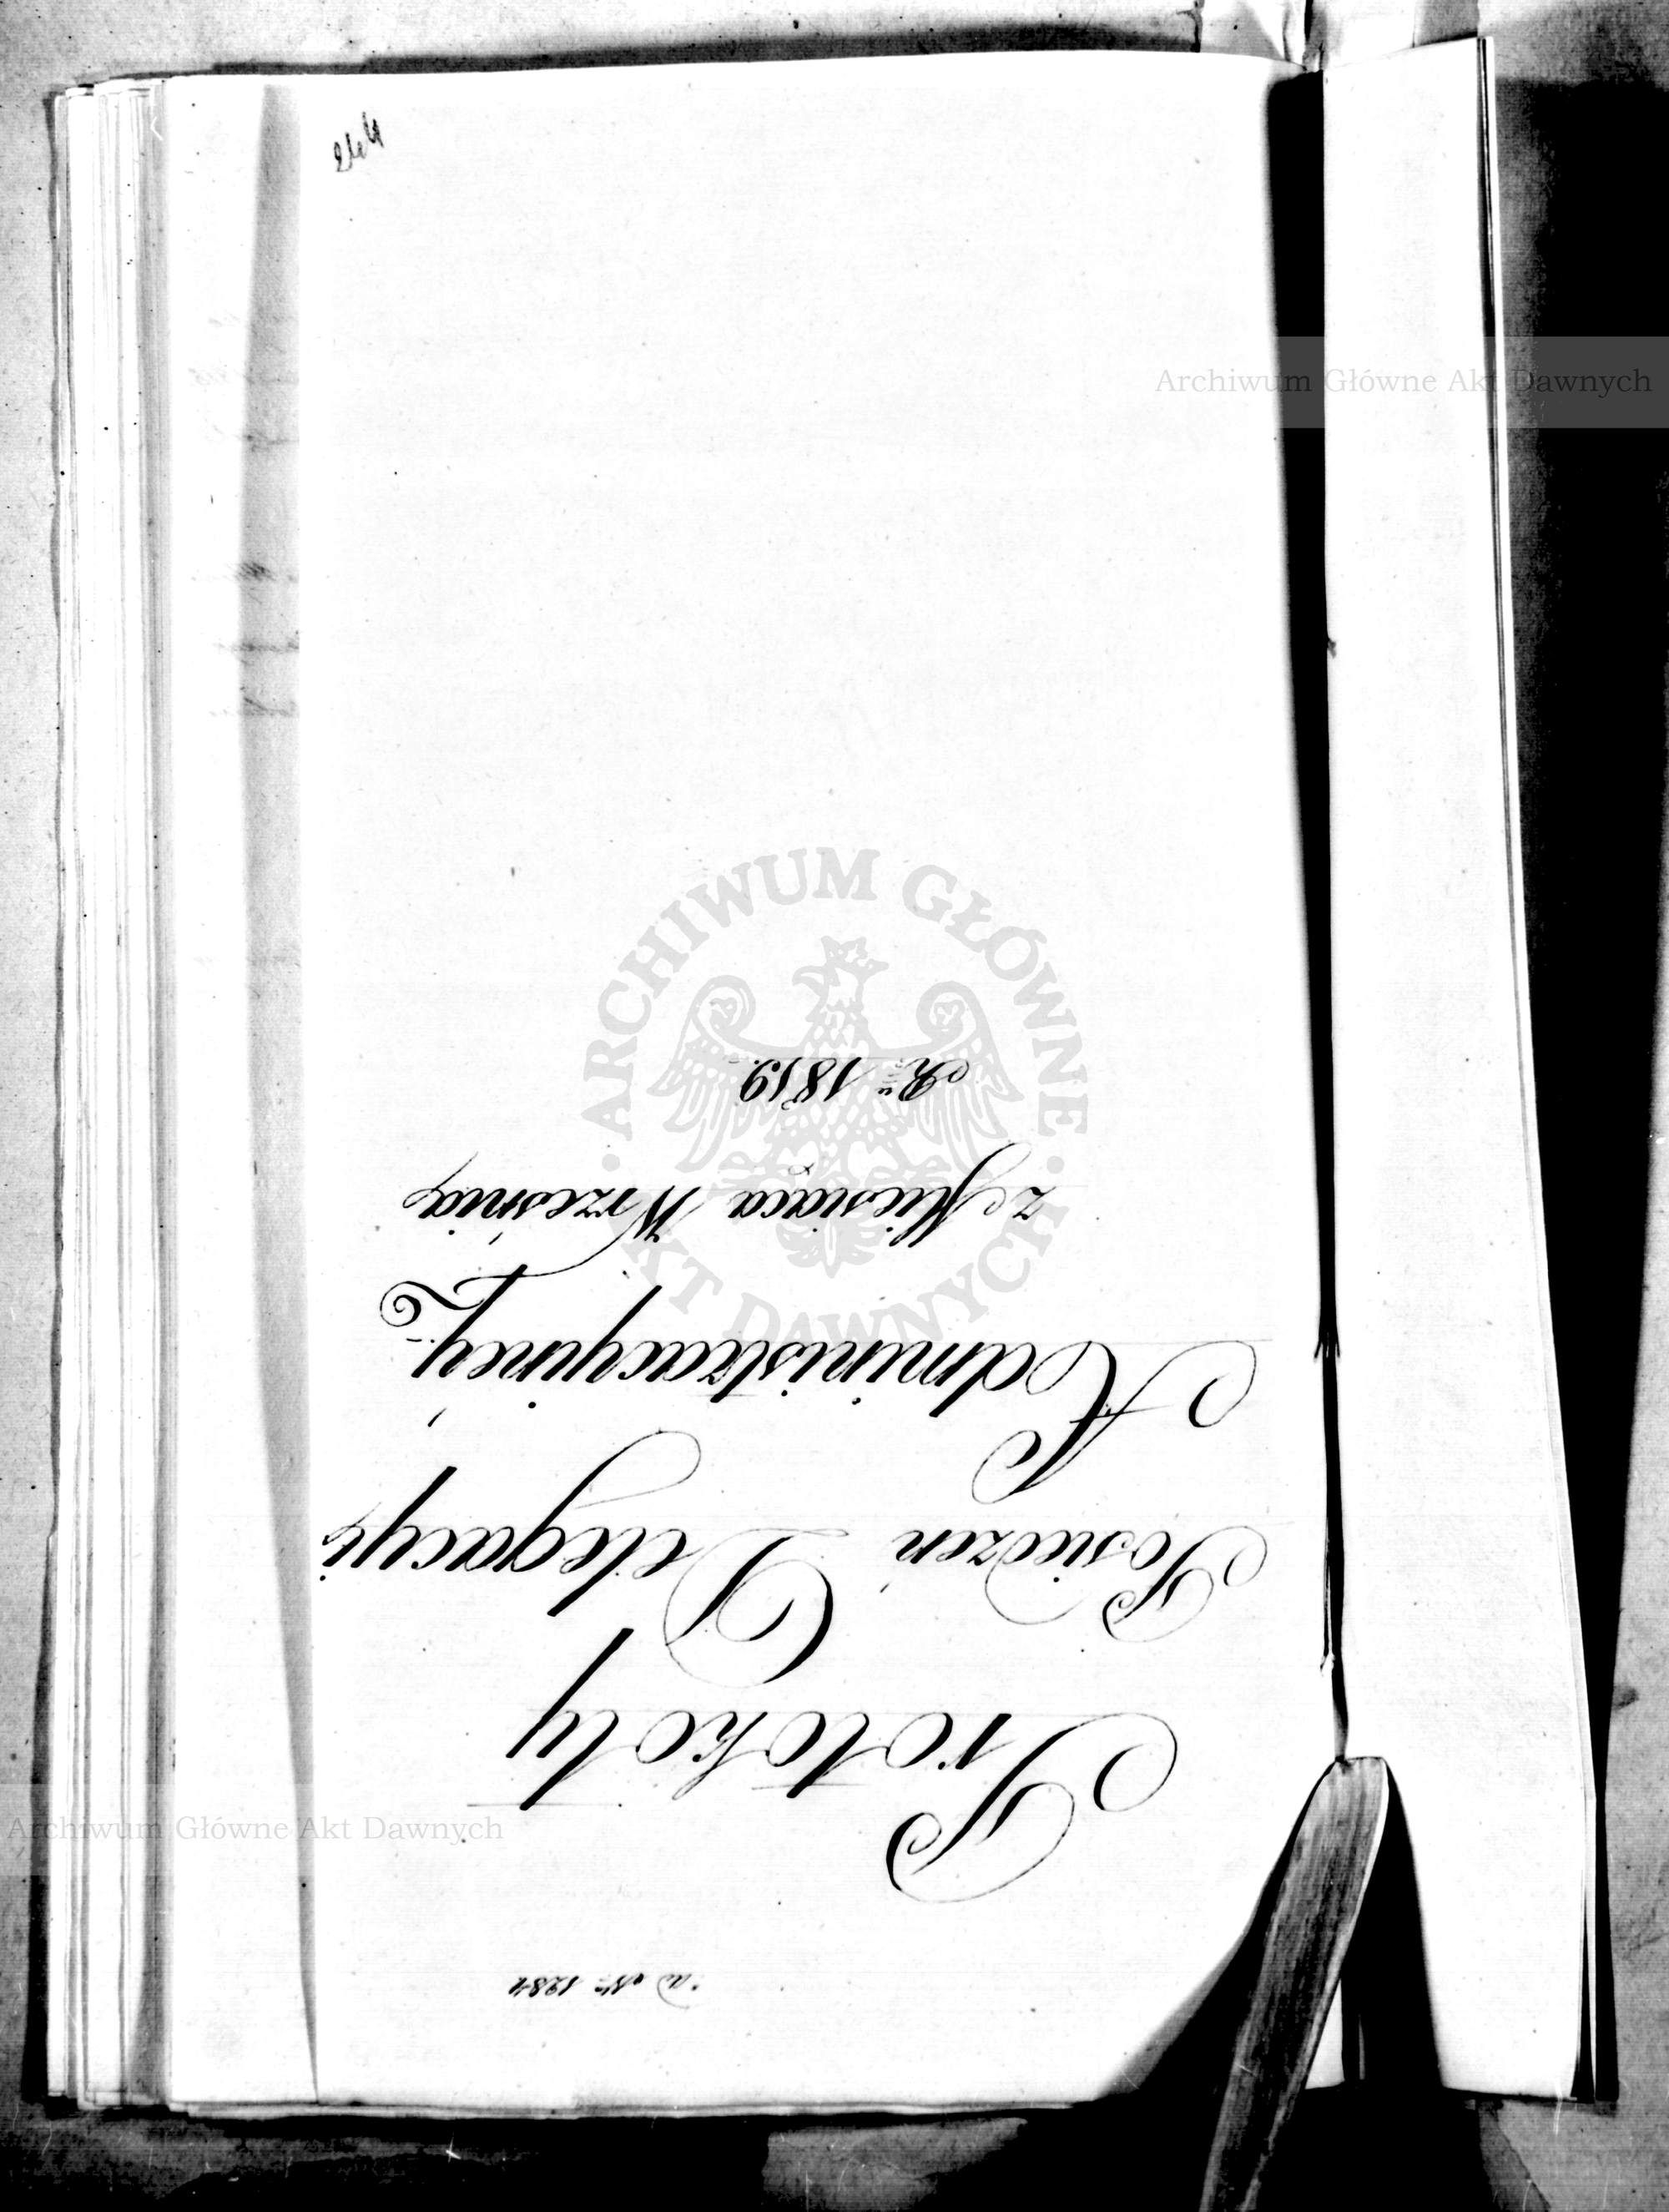 ad Nr 1284
Protokoły
Posiedzeń Delegacyi
Administracyinéy
z Miesiąca Września
Ru 1819.
244
Archiwum Główne Akt Dawnych
ARCHIWUM GŁÓWNE AKT DAWNYCH
Archiwum Główne Akt Dawnych